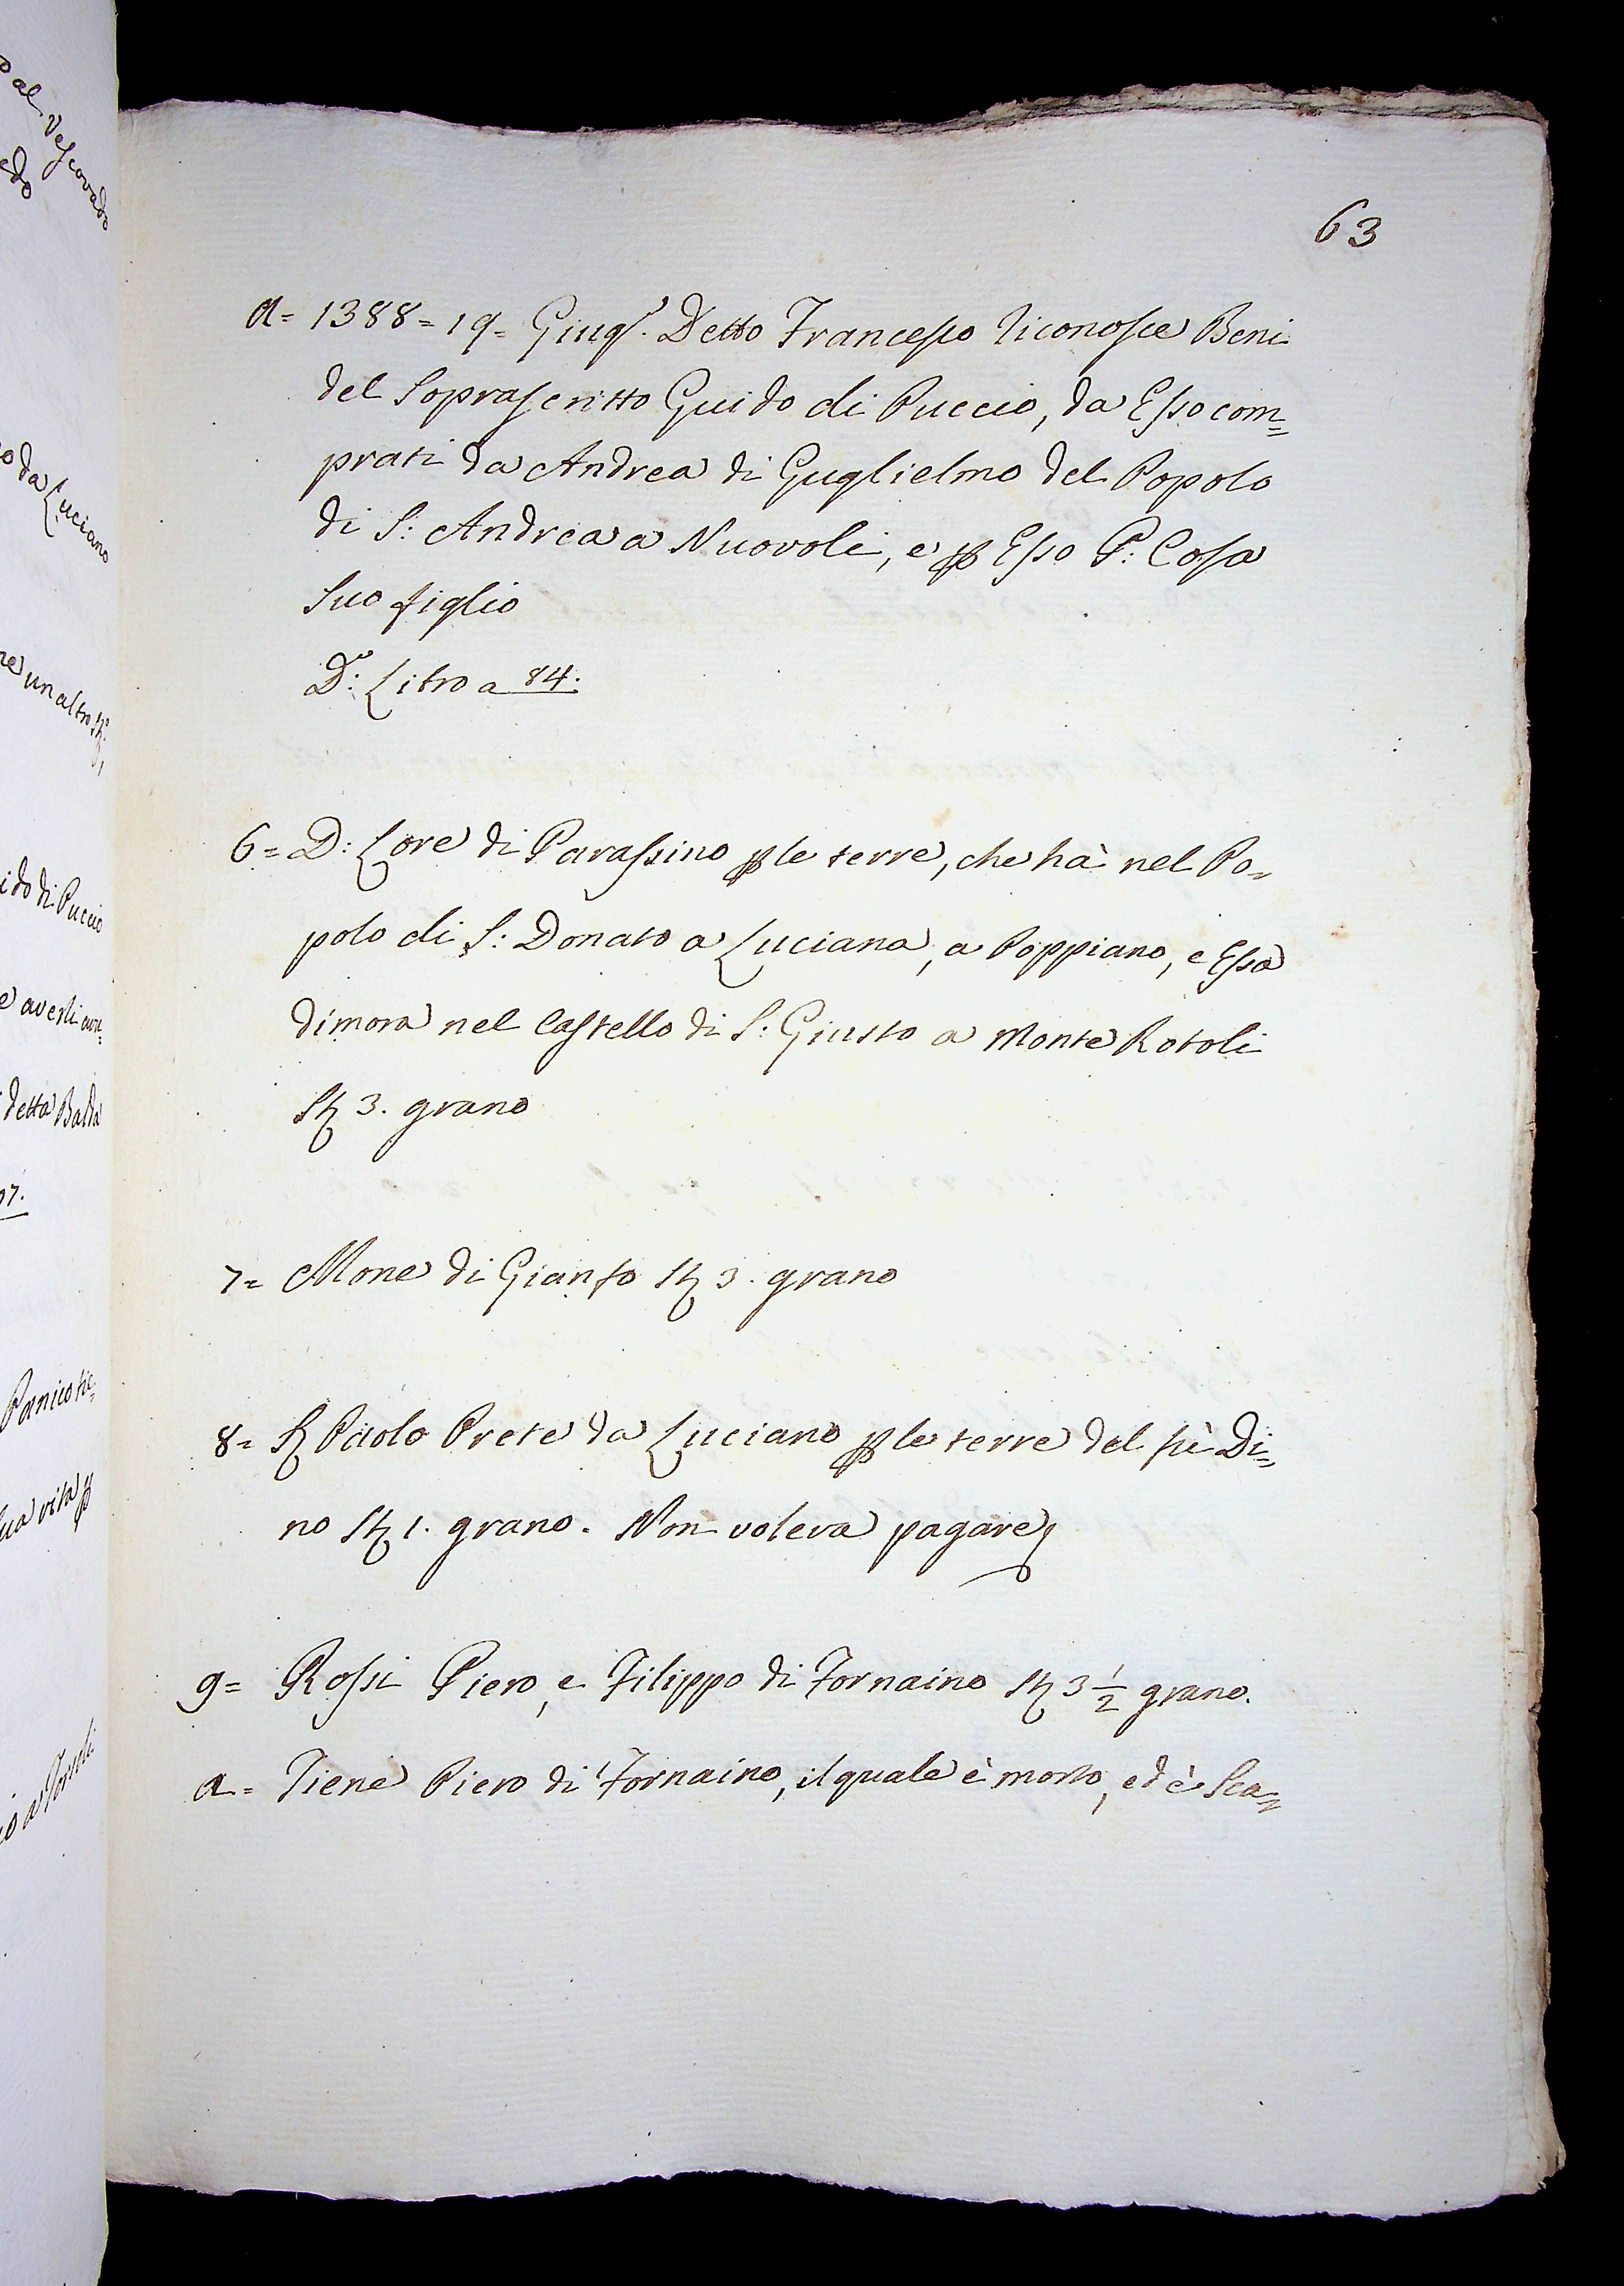 63
a= 1388=19= Giug.º Detto Francesco riconosce Beni
del Soprascritto Guido di Puccio, da Esso com=
prati da Andrea di Guglielmo del Popolo
di S: Andrea a Nuovoli, e p Esso P: Cosa
suo figlio
D.º: Libro a 84.
6= D: Lore di Parassino p le terre, che hà nel Po=
polo di S: Donato a Luciana, a Poppiano, e Essa
dimora nel Castello di S: Giusto a Monte Rotoli
St 3. grano
7= Mone di Gianfo St 3. grano
8= S Paolo Prete da Luciano p le terre del fù Di=
no St 1. grano. Non voleva pagare
9= Rossi Piero, e Filippo di Fornaino St 3 1/2 grano.
a= Tiene Piero di Fornaino, il quale è morto, ed è Sca=